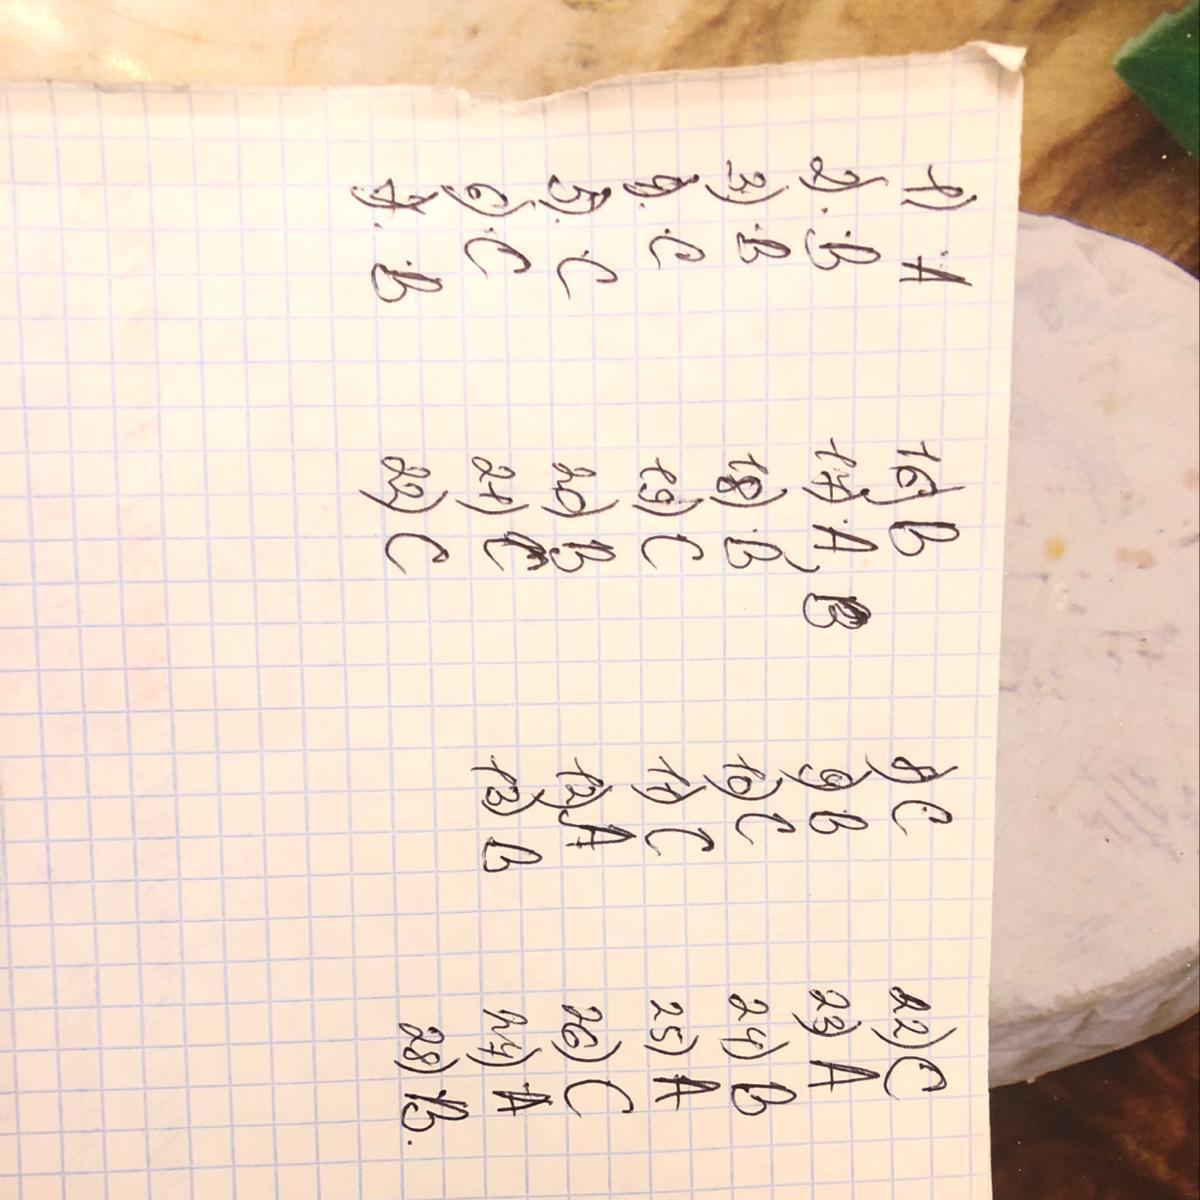 1) A
2) B
3) B
4. C
5) C
6) C
7. B
16) B
17) A B
18) B
19) C
20) B
21) C
22) C
8) C
9) B
10) C
11) C
12) A
13) B
22) C
23) A
24) B
25) A
26) C
27) A
28) B.